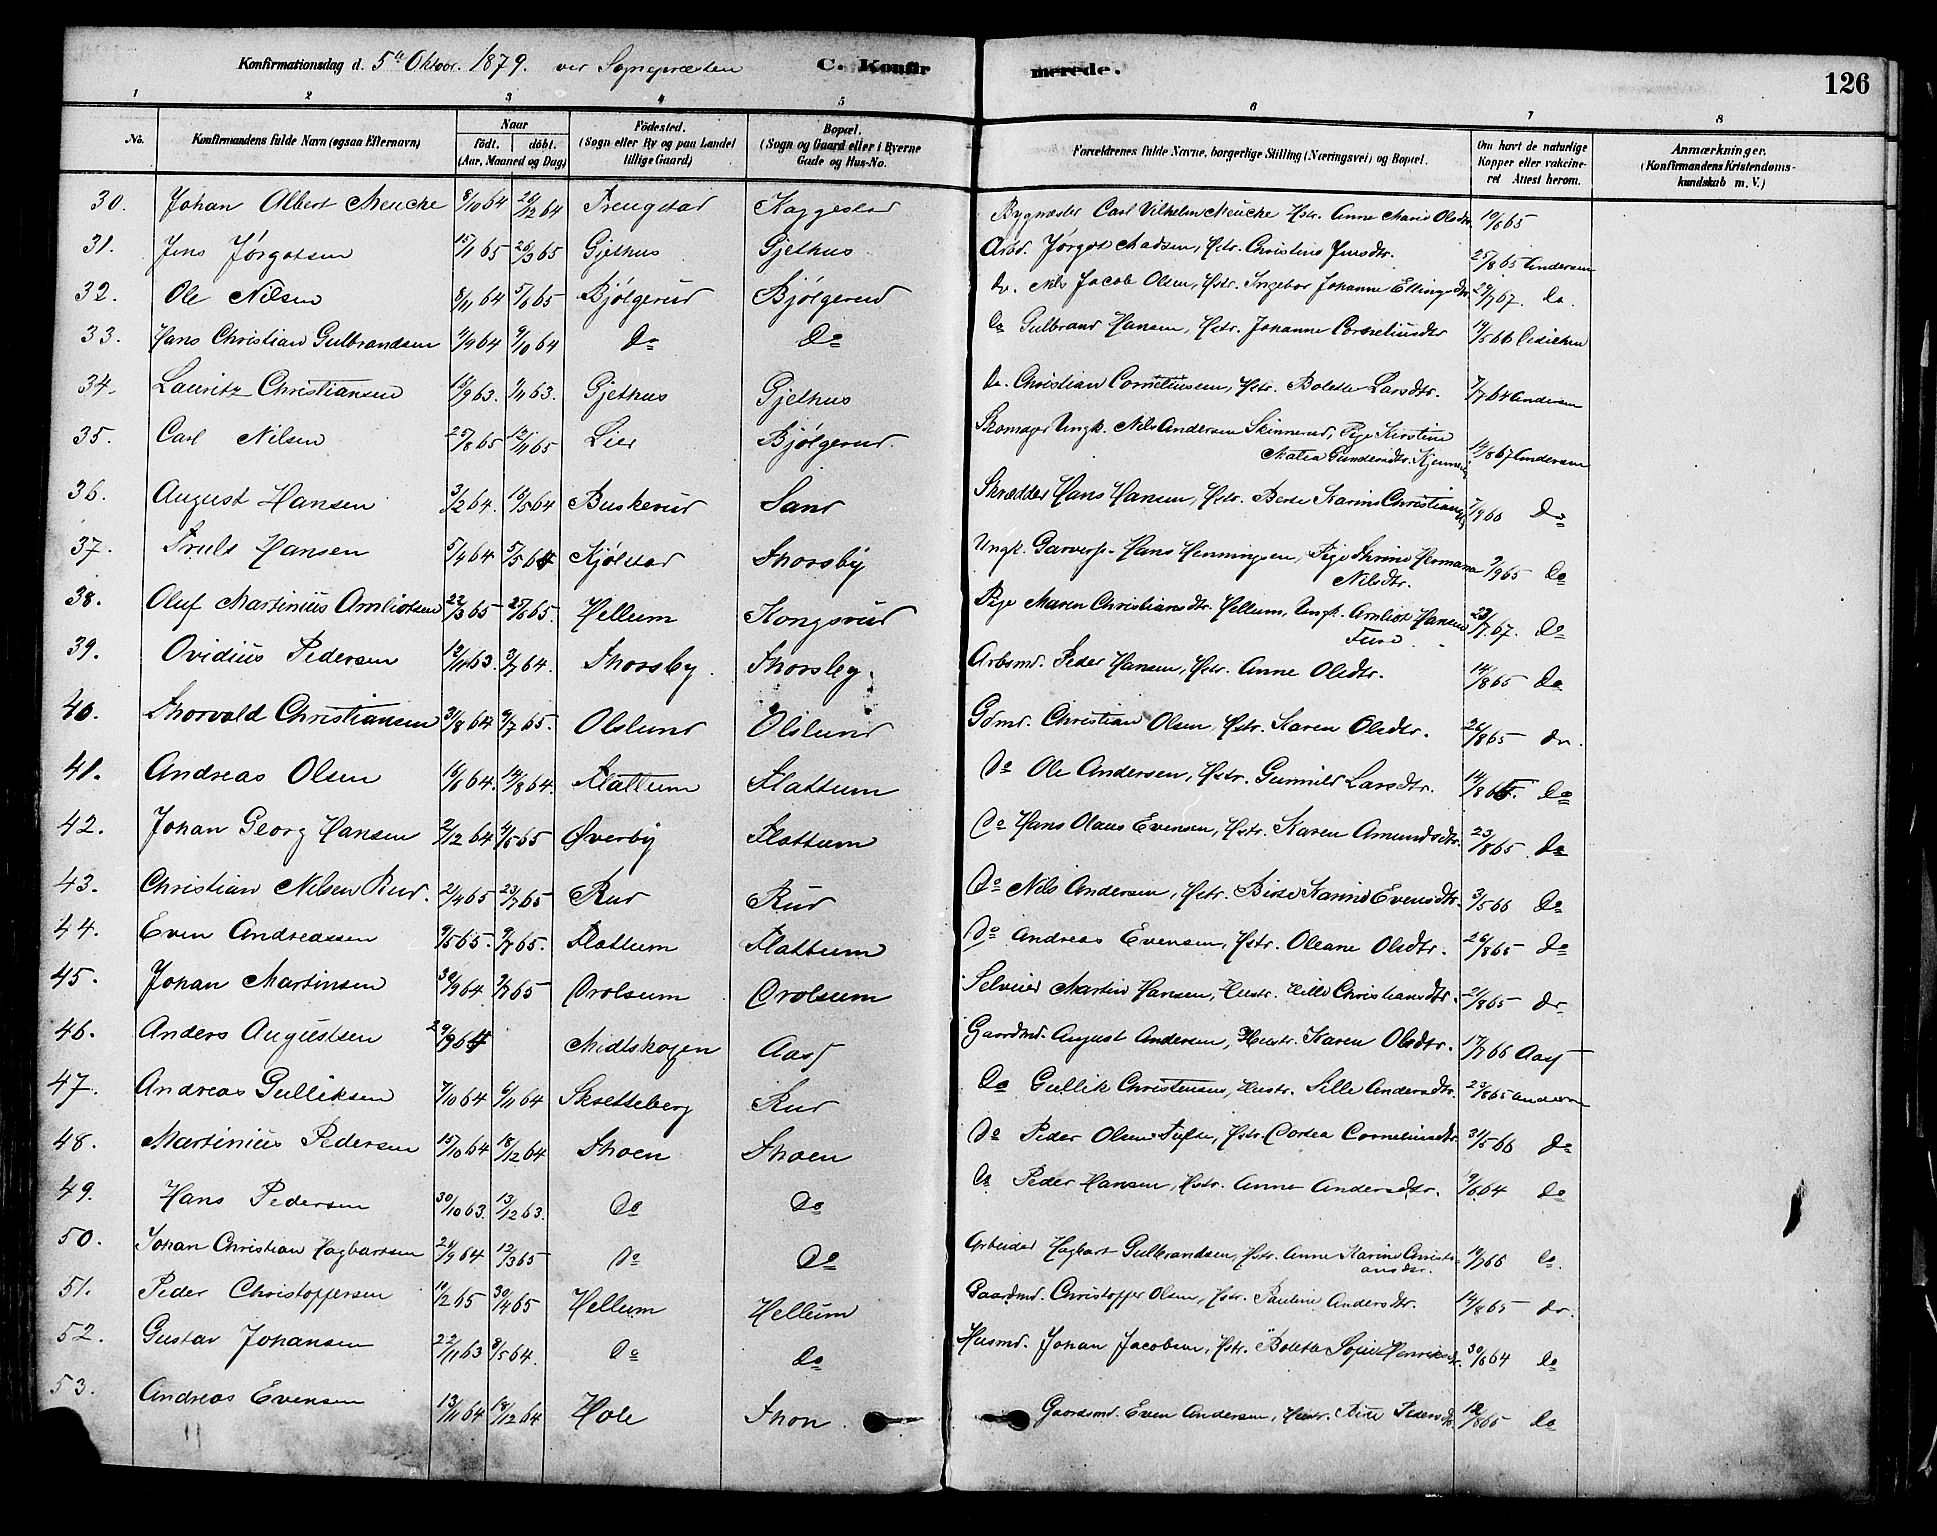 Konfirmationsdag d. 5te Oktobr. 1879. ved Sognepræsten C. Konfirmerede. 126
1 2 3 4 5 6 7 8
No. Konfirmandens fulde Navn (ogsaa Efternavn) Naar født. døbt. (Aar, Maaned og Dag) Fødested. (Sogn eller By og paa Landet tillige Gaard) Bopæl. (Sogn og Gaard eller i Byerne Gade og Hus-No. Forældrenes fulde Navne, borgerlige Stilling (Næringsvei) og Bopæl. Om havt de naturlige Kopper eller vakcineret Attest herom. Anmærkninger. (Konfirmandens Kristendomskundskab m. V.)
30. Johan Albert Meucke 8/10 64 26/12 64 Trengstad Kaggestad Bygmester Carl Vilhelm Meucke Hstr. Anne Marie Olsdtr. 10/8 65
31. Jens Jørgotsen 15/1 65 26/3 65 Gjethus Gjethus Arbd. Jørgot Madsen, Hstr. Christine Jensdtr. 25/8 65 Andersen
32. Ole Nilsen 8/11 64 5/6 65 Bjølgerud Bjølgerud Do. Nils Jacob Olsen, Hstr. Ingebor Johanne Ellingsdtr 29/7 67. Do.
33. Hans Christian Gulbrandsen 1/9 64 9/10 64 Do Do Do Gulbrand Hansen, Hstr. Johanne Corneliusdtr 14/5 66
34. Lauritz Christiansen 16/9 63. 1/11 63. Gjethus Gjethus Do. Christian Corneliussen, Hstr. Bolette Larsdtr. 7/7 64 Andersen
35. Carl Nilsen 25/8 65 12/11 65 Lier Bjølgerud Skomager Ungk. Nils Andersen Skinnerud, Pige Kirstine
Matea Gundersdtr. 14/8 67 Andersen
36. August Hansen 3/2 64. 16/5 64 Buskerud Sand Skrædder Hans Hansen, Hstr. Berte Karine Christiansdtr 7/9 66 Do
37. Truls Hansen 5/4 64 5/5 64 Kjølstad Thorsby Ungk. Garversv. Hans Henningsen, Pige Thrine Hermana
Nilsdtr. 9/9 65 Do
38. Oluf Martinius Arnliotsen 22/3 65 25/6 65. Hellum Kongsrud Pige Maren Christiansdtr. Hellum, Ungk. Arnliot Hansen
Fure 22/7 67. Do
39. Ovidius Pedersen 12/11 63. 3/7 64. Thorsby. Thorsby. Arbsmd. Peder Hansen, Hstr. Anne Olsdtr. 14/8 65 Do
40. Thorvald Christiansen 31/8 64 9/7 65. Olslund Olslund Gdmd. Christian Olsen, Hstr. Karen Olsdtr. 26/8 65 do.
41. Andreas Olsen 16/6 64. 14/8 64. Flattum Flattum Do Ole Andersen, Hstr. Gunnild Larsdtr. 14/8 65. Do
42. Johan Georg Hansen 2/12 64 6/5 65 Øverby Flattum Do Hans Olaus Evensen, Hstr. Karen Amundsdtr. 23/8 65. Do
43. Christian Nilsen Rud. 21/4 65 23/7 65 Rud Rud Do Nils Andersen, Hstr. Berte Karine Evensdtr. 3/5 66 Do
44. Even Andreassen 9/5 65. 9/7 65. Flattum Flattum Do Andreas Evensen, Hstr. Oleane Olsdtr. 26/8 65 Do
45. Johan Martinsen 30/9 64. 65 Drolsum Drolsum Selveier Martin Hansen, Hustr. Christiansdtr. 21/8 65 do
46. Anders Augustsen 29/9 64 Midtskogen Aas Gaardmd. August Andersen, Hustr. Karen Olsdtr. 17/7 66 Aas
47. Andreas Gulliksen 7/10 64 6/11 64 Skretteberg Rud Do Gullik Christensen, Hustr. Sille Andersdtr. 23/8 65 Andersen
48. Martinius Pedersen 15/10 64 18/12 64 Thoen Thoen Do Peder Olsen Tufte, Hstr. Dortea Corneliusdtr 31/5 66 Do
49. Hans Pedersen 30/10 63. 13/12 63. Do Do Do Peder Hansen, Hstr. Anne Andersdtr. 9/6 64 Do
50. Johan Christian Hagbartsen 24/9 64 12/3 65 Do Do Arbeider Hagbart Gulbrandsen, Hstr. Anne Karine Christi-
ansdtr. 19/7 66 Do.
51. Peder Christoffersen 10/2 65 30/4 65 Hellum Hellum Gaardmd. Christoffer Olsen, Hstr. Pauline Andersdtr. 14/8 65 do.
52. Gustav Johansen 22/11 63 8/5 64. Do Do Husmd. Johan Jacobsen, Hstr. Bolette Sofie Henriksdtr. 30/6 64 Do
53. Andreas Evensen 13/11 64 18/12 64 Hole Thon. Gaardmd. Even Andersen, Hustr. Pedersdtr 12/8 65 Do